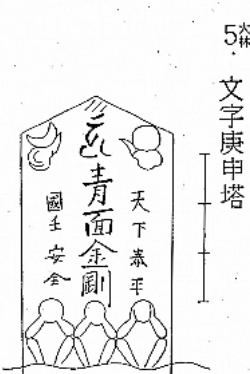 5 大林
文字庚申塔
天下泰平
青面金剛
國土安全